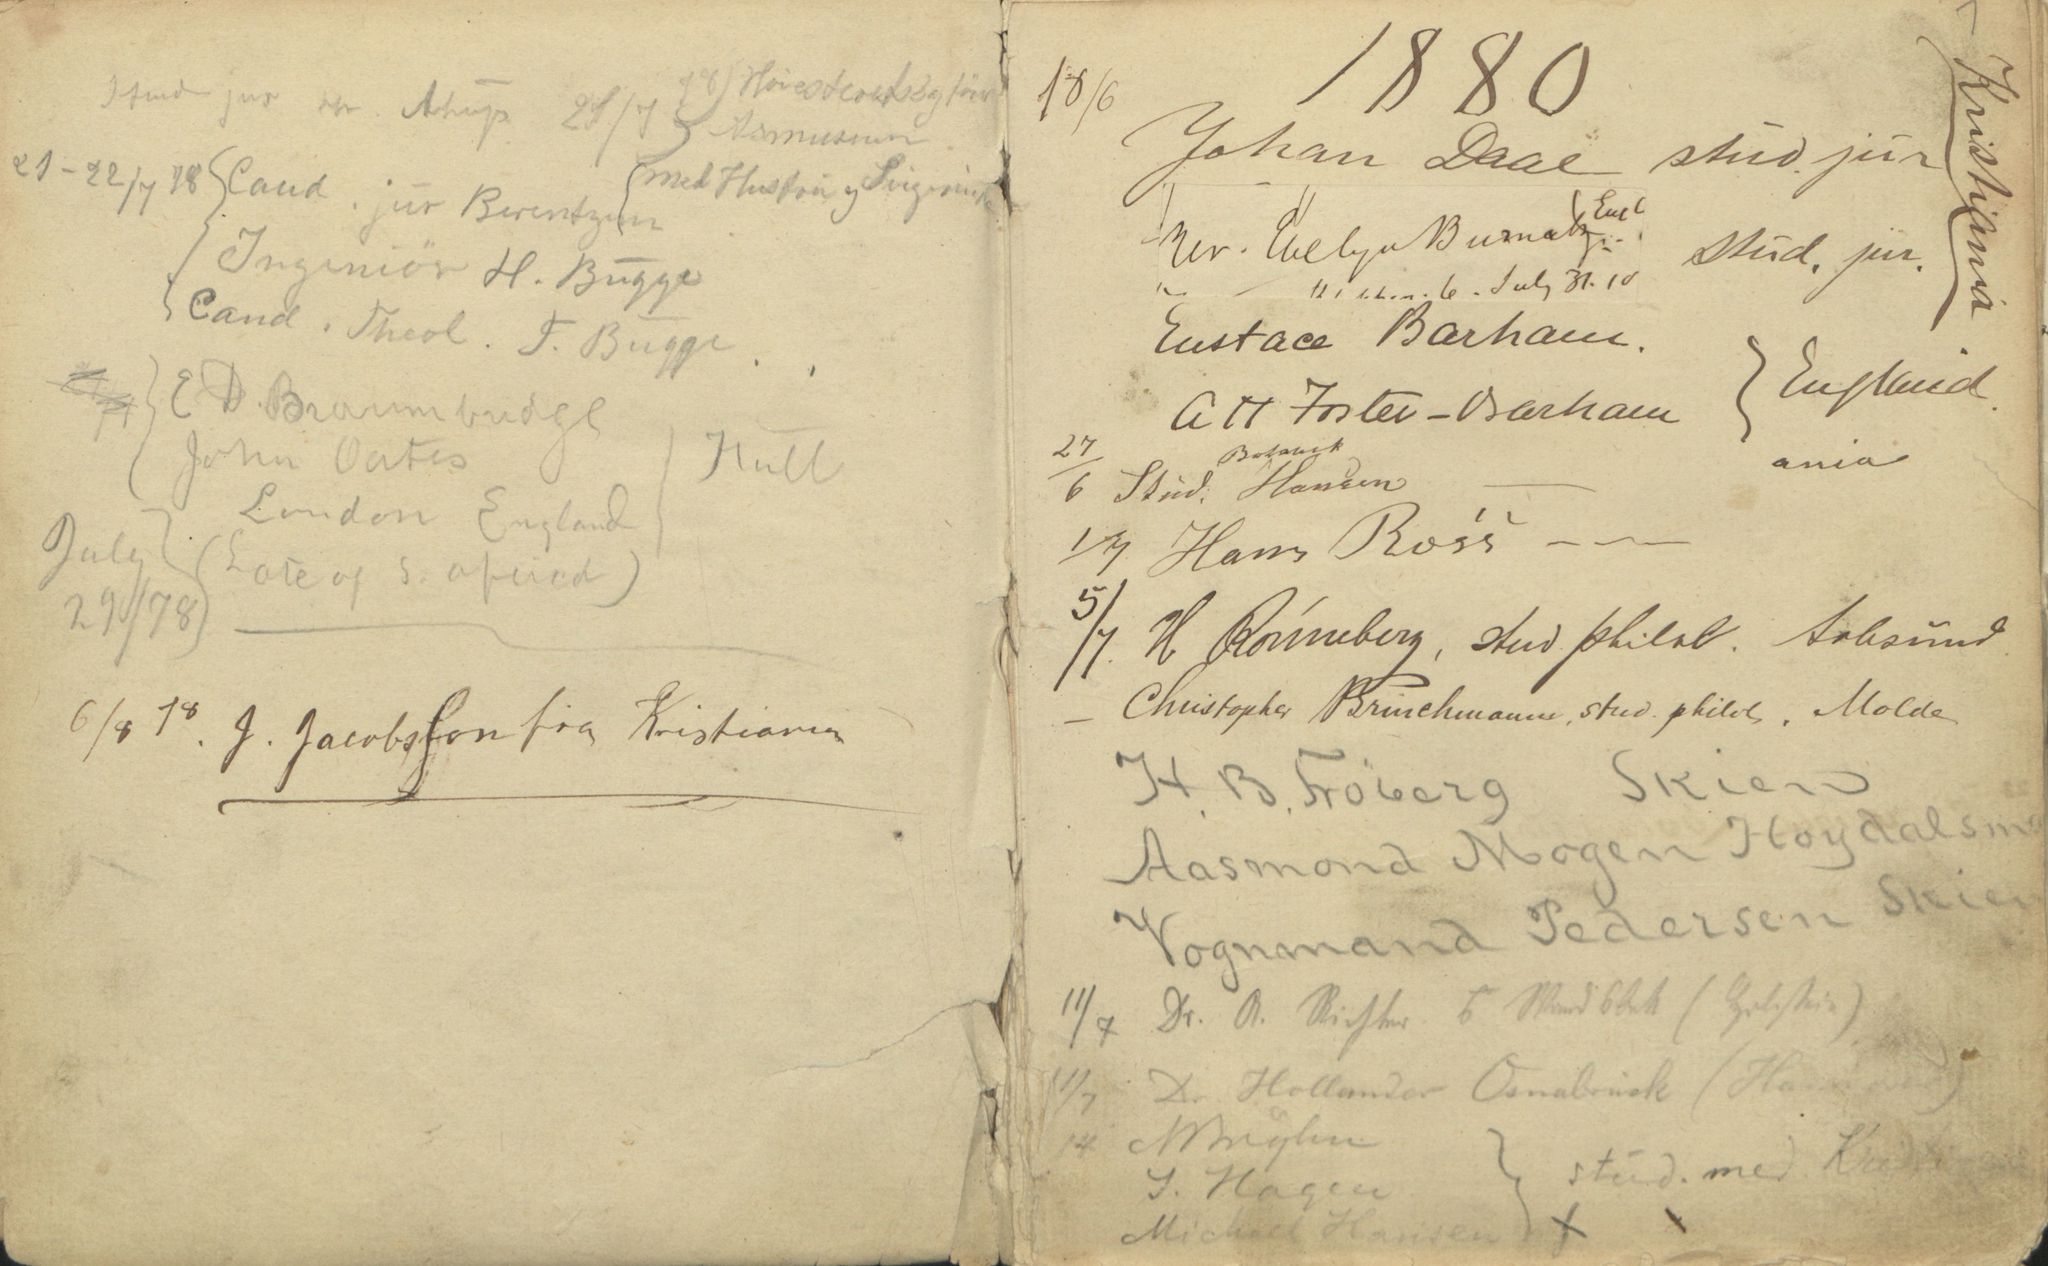 Stud jur 28/7 78
Asmussen
21-22/7 78 Cand. jur Berentzen
med Hustru og
Ingeniör H. Bugge
Cand. Theol. F. Bugge.
E D.
John Oates
Hull
London England
July 29/78 (Late of S. )
6/8 78. J. Jacobsson fra Kristiania
1880
18/6
Johan Daae stud. jur
Kristiania
Rev. Evelyn Engl
July 31. stud. jur.
Eustace Barham.
A H Foster-Barham
England.
27/6 Stud. Botanik Hansen — ania
1/7 Hans Ross — — —
5/7. H Rönneberg, stud philol. Aalesund.
— Christopher Brinchmann, stud. philol. Molde
H. B. Fröberg Skien
Aasmond Mogen Hoydalsmo
Vognmand Pedersen Skien
11/7 Dr. A. Richter Wandsbek (Holstein)
11/7 Dr Hollander Osnabrück (Hannover)
14
S. Hagen
stud. med. Kristiania
Michael Hansen